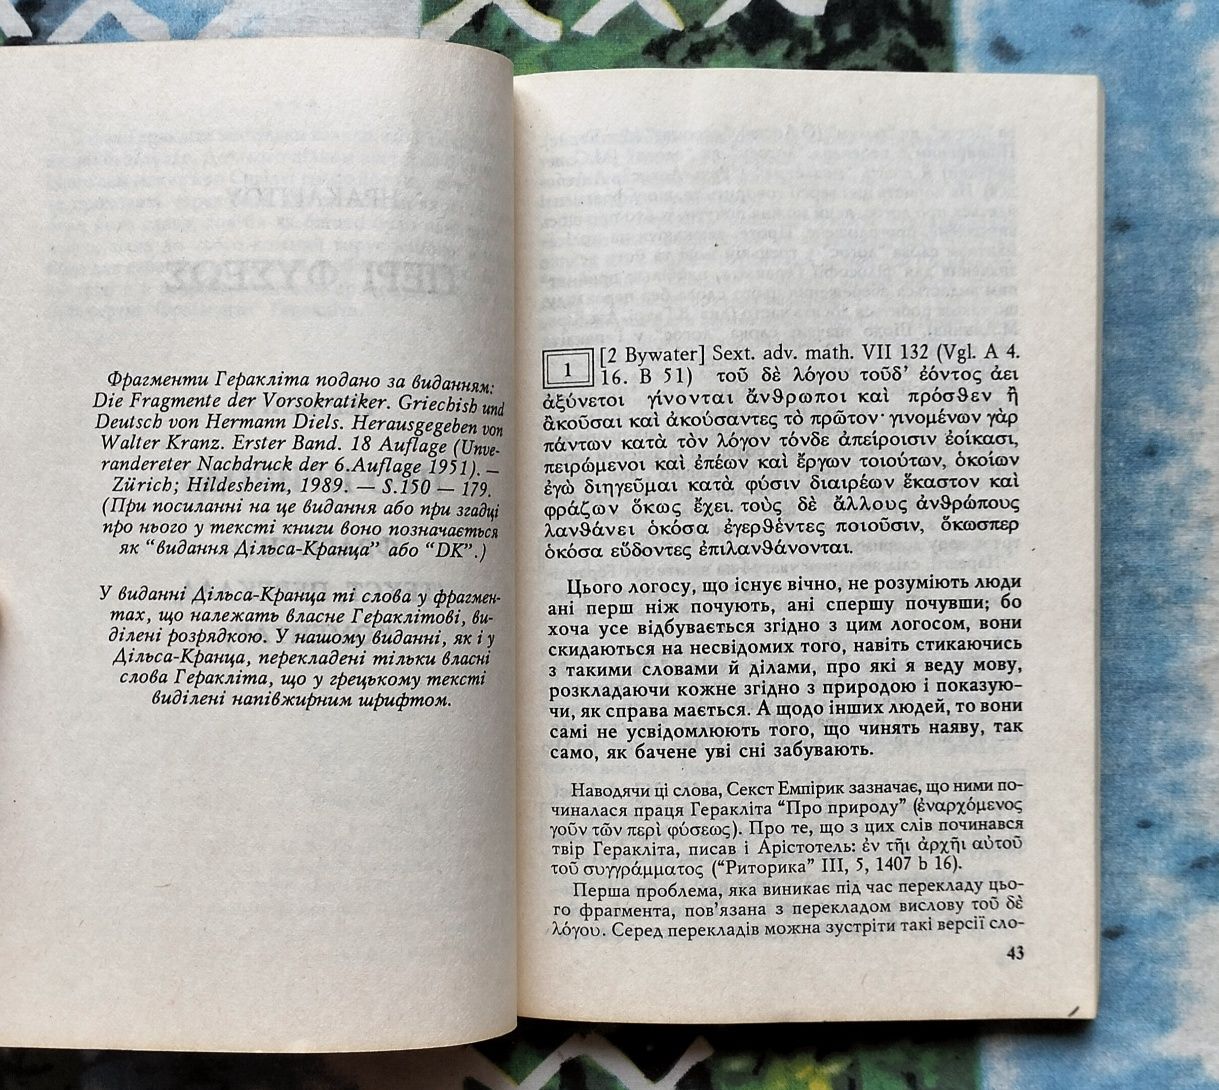 Фрагменти Геракліта подано за виданням:
Die Fragmente der Vorsokratiker. Griechish und
Deutsch von Hermann Diels. Herausgegeben von
Walter Kranz. Erster Band. 18 Auflage (Unve-
randereter Nachdruck der 6.Auflage 1951). —
Zürich; Hildesheim, 1989. — S.150 — 179.
(При посиланні на це видання або при згадці
про нього у тексті книги воно позначається
як “видання Дільса-Кранца” або “DK”.)
У виданні Дільса-Кранца ті слова у фрагмен-
тах, що належать власне Гераклітові, ви-
ділені розрядкою. У нашому виданні, як і у
Дільса-Кранца, перекладені тільки власні
слова Геракліта, що у грецькому тексті
виділені напівжирним шрифтом.
1
[2 Bywater] Sext. adv. math. VII 132 (Vgl. A 4.
16. B 51) τοῦ δὲ λόγου τοῦδ’ ἐόντος ἀεὶ
ἀξύνετοι γίνονται ἄνθρωποι καὶ πρόσθεν ἢ
ἀκοῦσαι καὶ ἀκούσαντες τὸ πρῶτον· γινομένων γὰρ
πάντων κατὰ τὸν λόγον τόνδε ἀπείροισιν ἐοίκασι,
πειρώμενοι καὶ ἐπέων καὶ ἔργων τοιούτων, ὁκοίων
ἐγὼ διηγεῦμαι κατὰ φύσιν διαιρέων ἕκαστον καὶ
φράζων ὅκως ἔχει. τοὺς δὲ ἄλλους ἀνθρώπους
λανθάνει ὁκόσα ἐγερθέντες ποιοῦσιν, ὅκωσπερ
ὁκόσα εὕδοντες ἐπιλανθάνονται.
Цього логосу, що існує вічно, не розуміють люди
ані перш ніж почують, ані спершу почувши; бо
хоча усе відбувається згідно з цим логосом, вони
скидаються на несвідомих того, навіть стикаючись
з такими словами й ділами, про які я веду мову,
розкладаючи кожне згідно з природою і показую-
чи, як справа мається. А щодо інших людей, то вони
самі не усвідомлюють того, що чинять наяву, так
само, як бачене уві сні забувають.
Наводячи ці слова, Секст Емпірик зазначає, що ними по-
чиналася праця Геракліта “Про природу” (ἐναρχόμενος
γοῦν τῶν περὶ φύσεως). Про те, що з цих слів починався
твір Геракліта, писав і Арістотель: ἐν τῆι ἀρχῆι αὐτοῦ
τοῦ συγγράμματος (“Риторика” III, 5, 1407 b 16).
Перша проблема, яка виникає під час перекладу цьо-
го фрагмента, пов’язана з перекладом вислову τοῦ δὲ
λόγου. Серед перекладів можна зустріти такі версії сло-
43